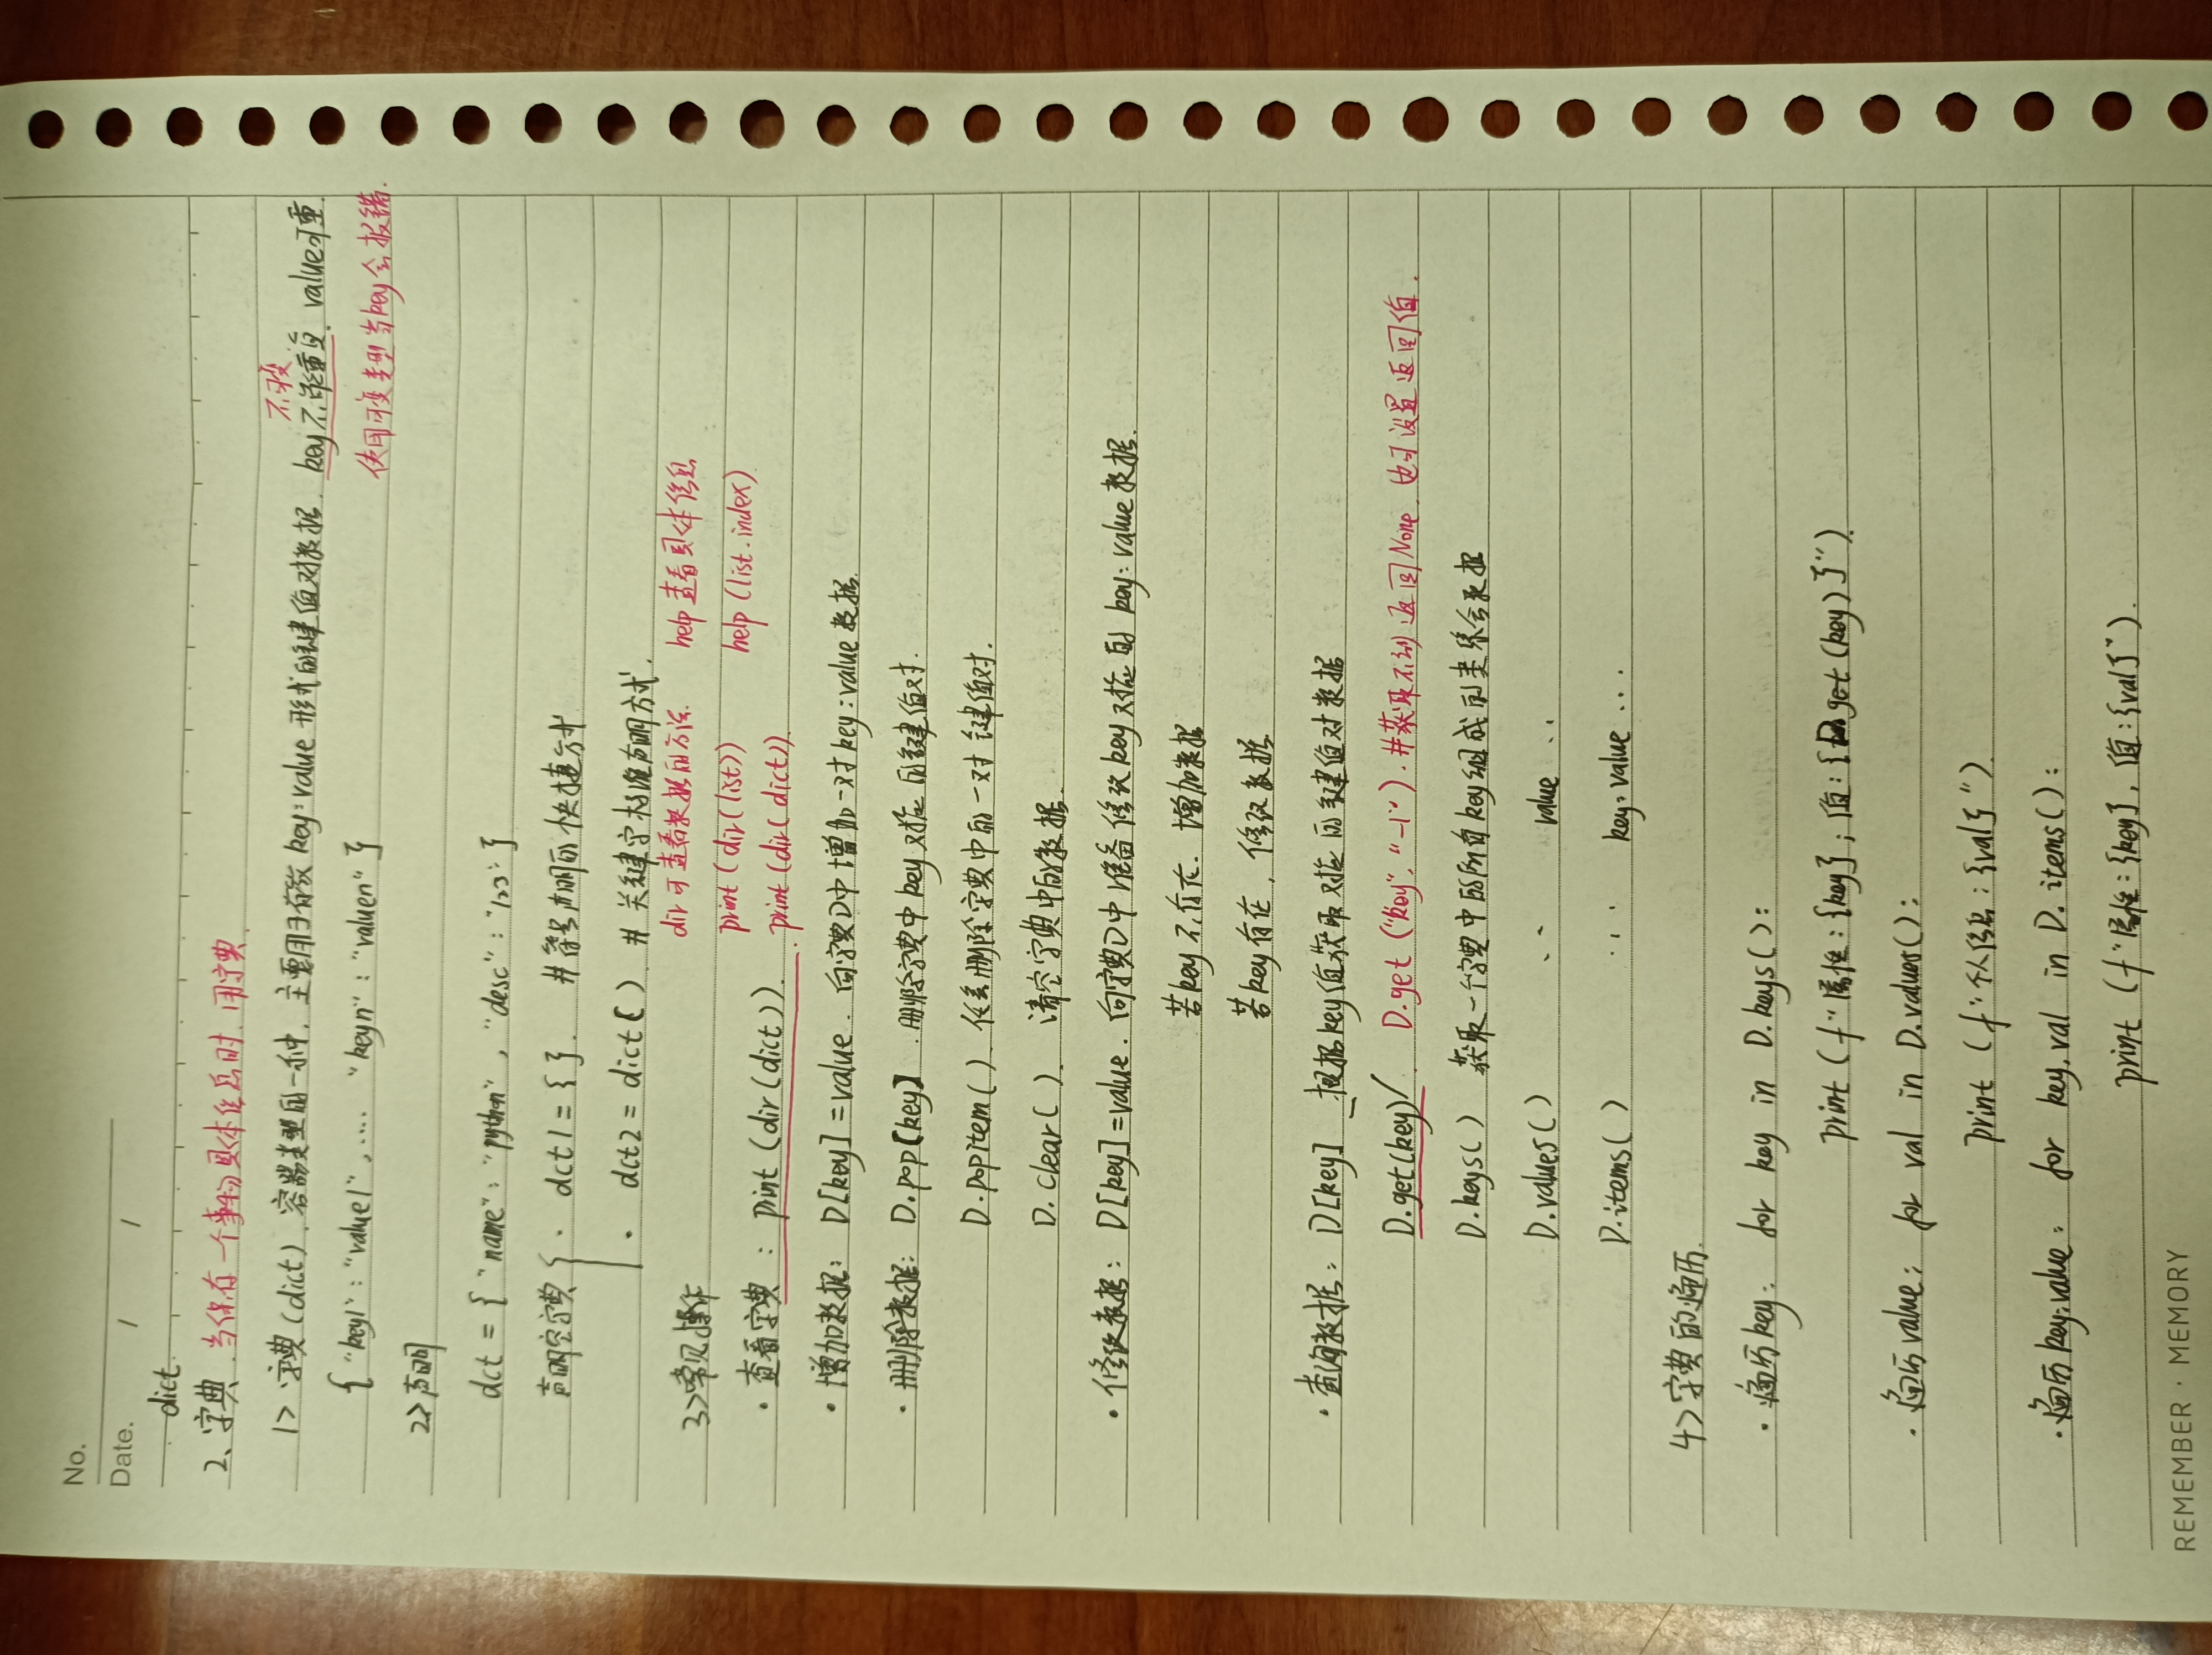 No.
Date. / /
dict
2、字典. 当保存一个事物具体信息时. 用字典.
不可变.
1> 字典(dict). 容器类型的一种. 主要用于存放 key:value 形式的键值对数据. key不能重复. value可重.
{ "key1" : "value1" , .... "keyn" : "valuen" }
使用可变类型当key会报错.
2> 声明
dct = { "name" : "python" , "desc" : "123" }
声明空字典 { · dct1 = { }. # 符号声明的快捷方式
· dct2 = dict( ) # 关键字标准声明方式.
dir 可查看数据的方法. help 查看具体信息
3> 常见操作
print (dir(list)) help (list.index)
· 查看字典 : print (dir(dict)). print (dir(dict)).
· 增加数据: D[key] = value. 向字典D中增加一对key:value数据.
· 删除数据: D.pop[key] . 删除字典中key对应的键值对.
D.popitem( ) 任意删除字典中的一对键值对.
D.clear( ). 清空字典中的数据.
· 修改数据: D[key] = value. 向字典D中准备修改key对应的 key:value数据.
若key不存在. 增加数据
若key存在, 修改数据
· 查询数据: D[key] 根据key值获取对应的键值对数据
D.get(key)/ D.get ("key", "-1"). #获取不到返回None. 也可设置返回值.
D.keys( ) 获取一个字典中的所有key组成的类集合数据
D.values( ) ·· value ··
D.items( ) ··· key:value ···
4> 字典的遍历.
· 遍历key: for key in D.keys( ):
print (f"属性:{key}; 值:{D.get(key)}").
· 遍历value: for val in D.values():
print (f"个人信息:{val}").
· 遍历key:value: for key,val in D.items():
print (f"属性:{key}, 值:{val}").
REMEMBER · MEMORY